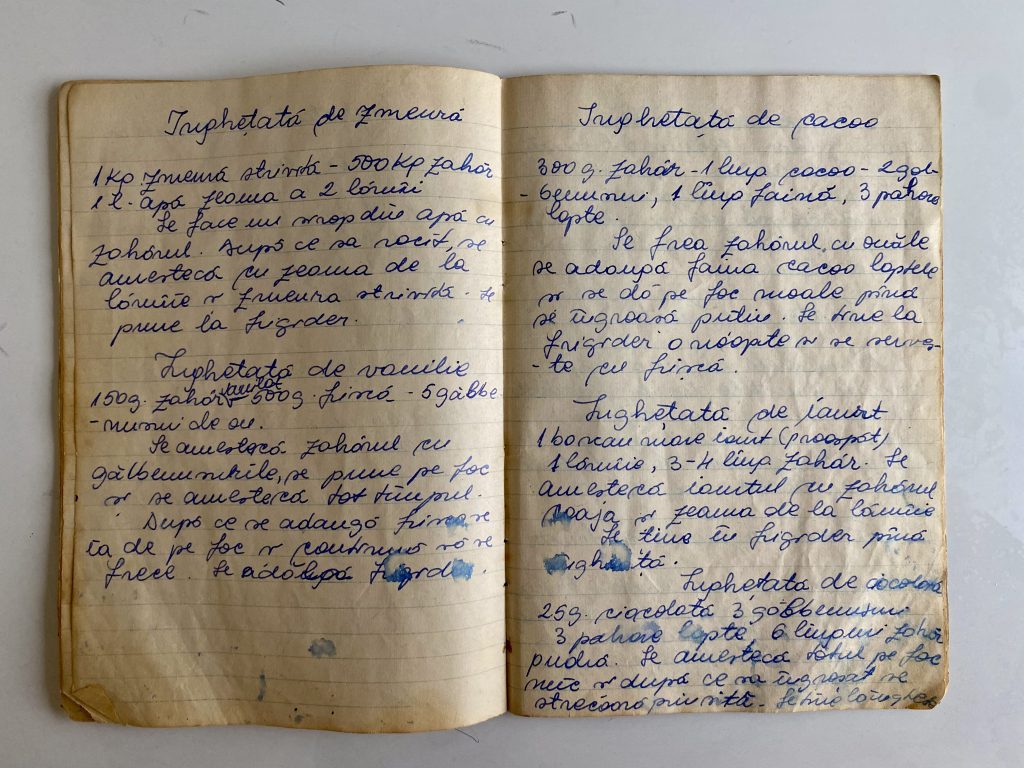 Inghețată de zmeură
1 kg zmeură strivită - 500 kg zahăr
1 l. apă zeama a 2 lămîi
Se face un sirop din apă cu
zahărul. După ce sa racit, se
amestecă cu zeama de la
lămîie și zmeura strivită. Se
pune la frigider.
Inghețată de vanilie
150g. zahăr - 500g. frișcă - 5 gălbe-
-nușuri de ou.
Se amestecă zahărul cu
gălbenușurile, se pune pe foc
și se amestecă tot timpul.
După ce se adaugă frișca, se
ia de pe foc și continuă să se
frece. Se adăbgă frigider.
Inghetață de cacao
300g. zahăr - 1 ling cacao - 2 gal-
- benușuri, 1 ling faină, 3 pahare
lapte.
Se freacă zahărul, cu ouăle
se adaugă faina cacao laptele
și se dă pe foc moale pînă
se îngroașă puțin. Se tine la
frigider o noapte și se serveș-
-te cu frișcă.
Inghețată de iaurt
1 borcan mare iaurt (proaspăt)
1 lămîie, 3-4 ling zahăr. Se
amestecă iaurtul cu zahărul
coaja și zeama de la lămîie
Se tine în frigider pînă
înghiață.
Inghetată de ciocolată
25g. ciocolată 3 gălbenușuri
3 pahare lapte, 6 linguri zahăr
pudră. Se amestecă totul pe foc
mic și după ce sa îngroșat se
strecoară prin sită. Se tine la